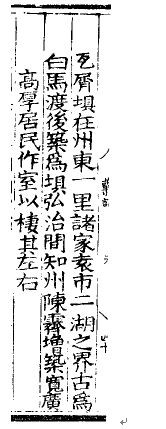 瓦屑垻在州東一里諸家袁市二湖之界古為
白馬渡後築為垻弘治間知州陳霽增築寬廣
高厚居民作室以棲其左右